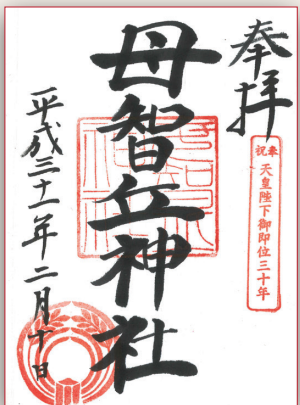 奉拝
奉祝
天皇陛下御即位三十年
母智丘神社
平成三十一年二月十日